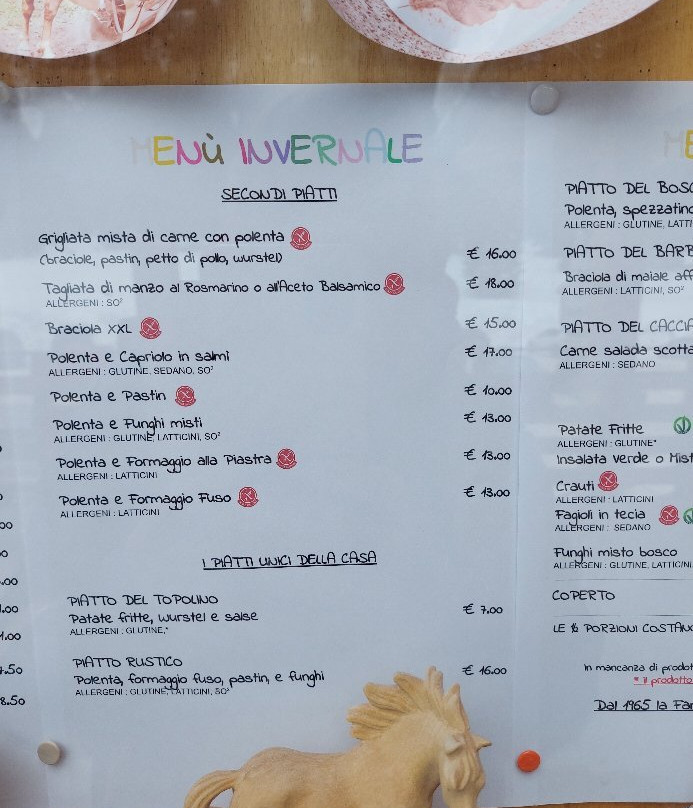 MENÙ INVERNALE
SECONDI PIATTI
Grigliata mista di carne con polenta
(braciole, pastin, petto di pollo, wurstel)
€ 16.00
Tagliata di manzo al Rosmarino o all'Aceto Balsamico
€ 18.00
ALLERGENI : SO²
Braciola XXL
€ 15.00
Polenta e Capriolo in salmi
€ 17.00
ALLERGENI : GLUTINE, SEDANO, SO²
Polenta e Pastin
€ 10.00
Polenta e Funghi misti
€ 13.00
ALLERGENI : GLUTINE, LATTICINI, SO²
Polenta e Formaggio alla Piastra
€ 13.00
ALLERGENI : LATTICINI
Polenta e Formaggio Fuso
€ 13.00
ALLERGENI : LATTICINI
I PIATTI UNICI DELLA CASA
PIATTO DEL TOPOLINO
Patate fritte, wurstel e salse
€ 7.00
ALLERGENI : GLUTINE,*
PIATTO RUSTICO
Polenta, formaggio fuso, pastin, e funghi
€ 16.00
ALLERGENI : GLUTINE, LATTICINI, SO²
PIATTO DEL
Polenta,
ALLERGENI : GLUTINE,
PIATTO DEL
Braciola di maiale
ALLERGENI : LATTICINI, SO²
PIATTO DEL
Carne salada
ALLERGENI : SEDANO
Patate Fritte
ALLERGENI : GLUTINE*
Insalata verde o
Crauti
ALLERGENI : LATTICINI
Fagioli in tecia
ALLERGENI : SEDANO
Funghi misto bosco
ALLERGENI : GLUTINE, LATTICINI
COPERTO
LE ½ PORZIONI
In mancanza di
* il prodotto
Dal 1965 la